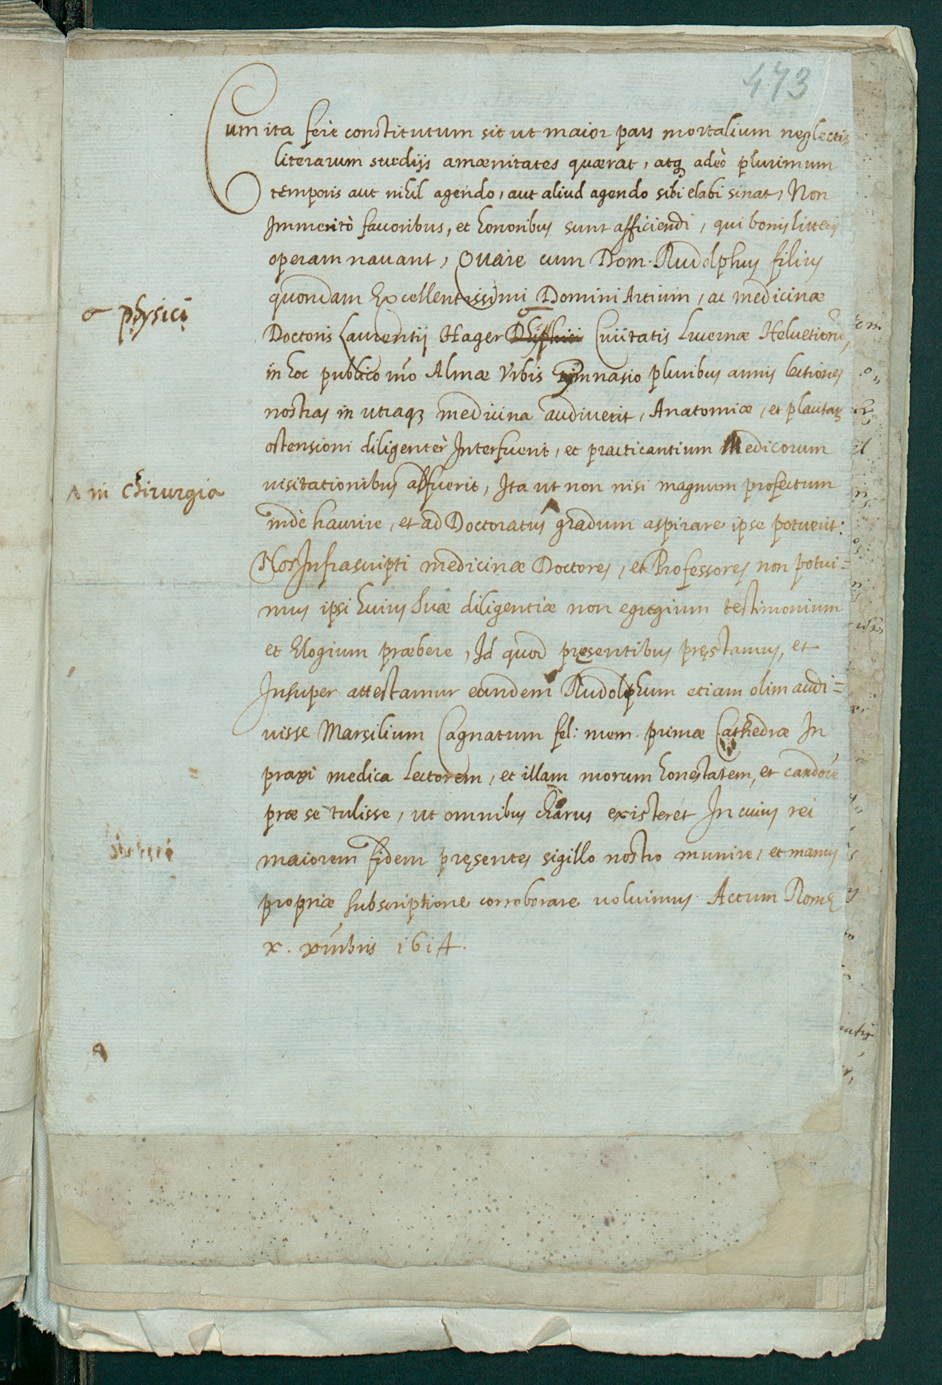 473
Cum ita fere constitutum sit ut maior pars mortalium neglectis
literarum studijs amænitates quærat, atq adeò plurimum
temporis aut nihil agendo, aut aliud agendo sibi elabi sinat, Non
Immeritò favoribus, et honoribus sunt afficiendi, qui bonis litteris
operam navant, Quare cum Dom. Rudolphus filius
quondam Excellentissimi Domini Artium, ac medicinæ
σ physici
Doctoris Laurentij Hager Civitatis Lucernæ Helvetiorū,
in hoc publico nrō Almæ Urbis Gimnasio pluribus annis lectiones
nostras in utraq medicina audiverit, Anatomiæ, et plantarū
ostensioni diligenter Interfuerit, et practicantium Medicorum
ʌ in chirurgia
visitationibus affuerit, Ita ut non nisi magnum profectum
indè haurire, et ad Doctoratus gradum aspirare ipse potuerit:
Nos Infrascripti medicinæ Doctores, et Professores non potui=
mus ipsi huius suæ diligentiæ non egregium testimonium
et Elogium præbere, Id quod pręsentibus pręstamus, et
Insuper attestamur eundem Rudolphum etiam olim audi=
visse Marsilium Cagnatum fel: mem. primæ Cathedræ In
praxi medica Lectorem, et illam morum honestatem, et candorē
præ se tulisse, ut omnibus charus existeret In cuius rei
maiorem fidem pręsentes sigillo nostro munire, et manus
propriæ subscriptione corroborare voluimus. Actum Romę
x. xmbris 1614.